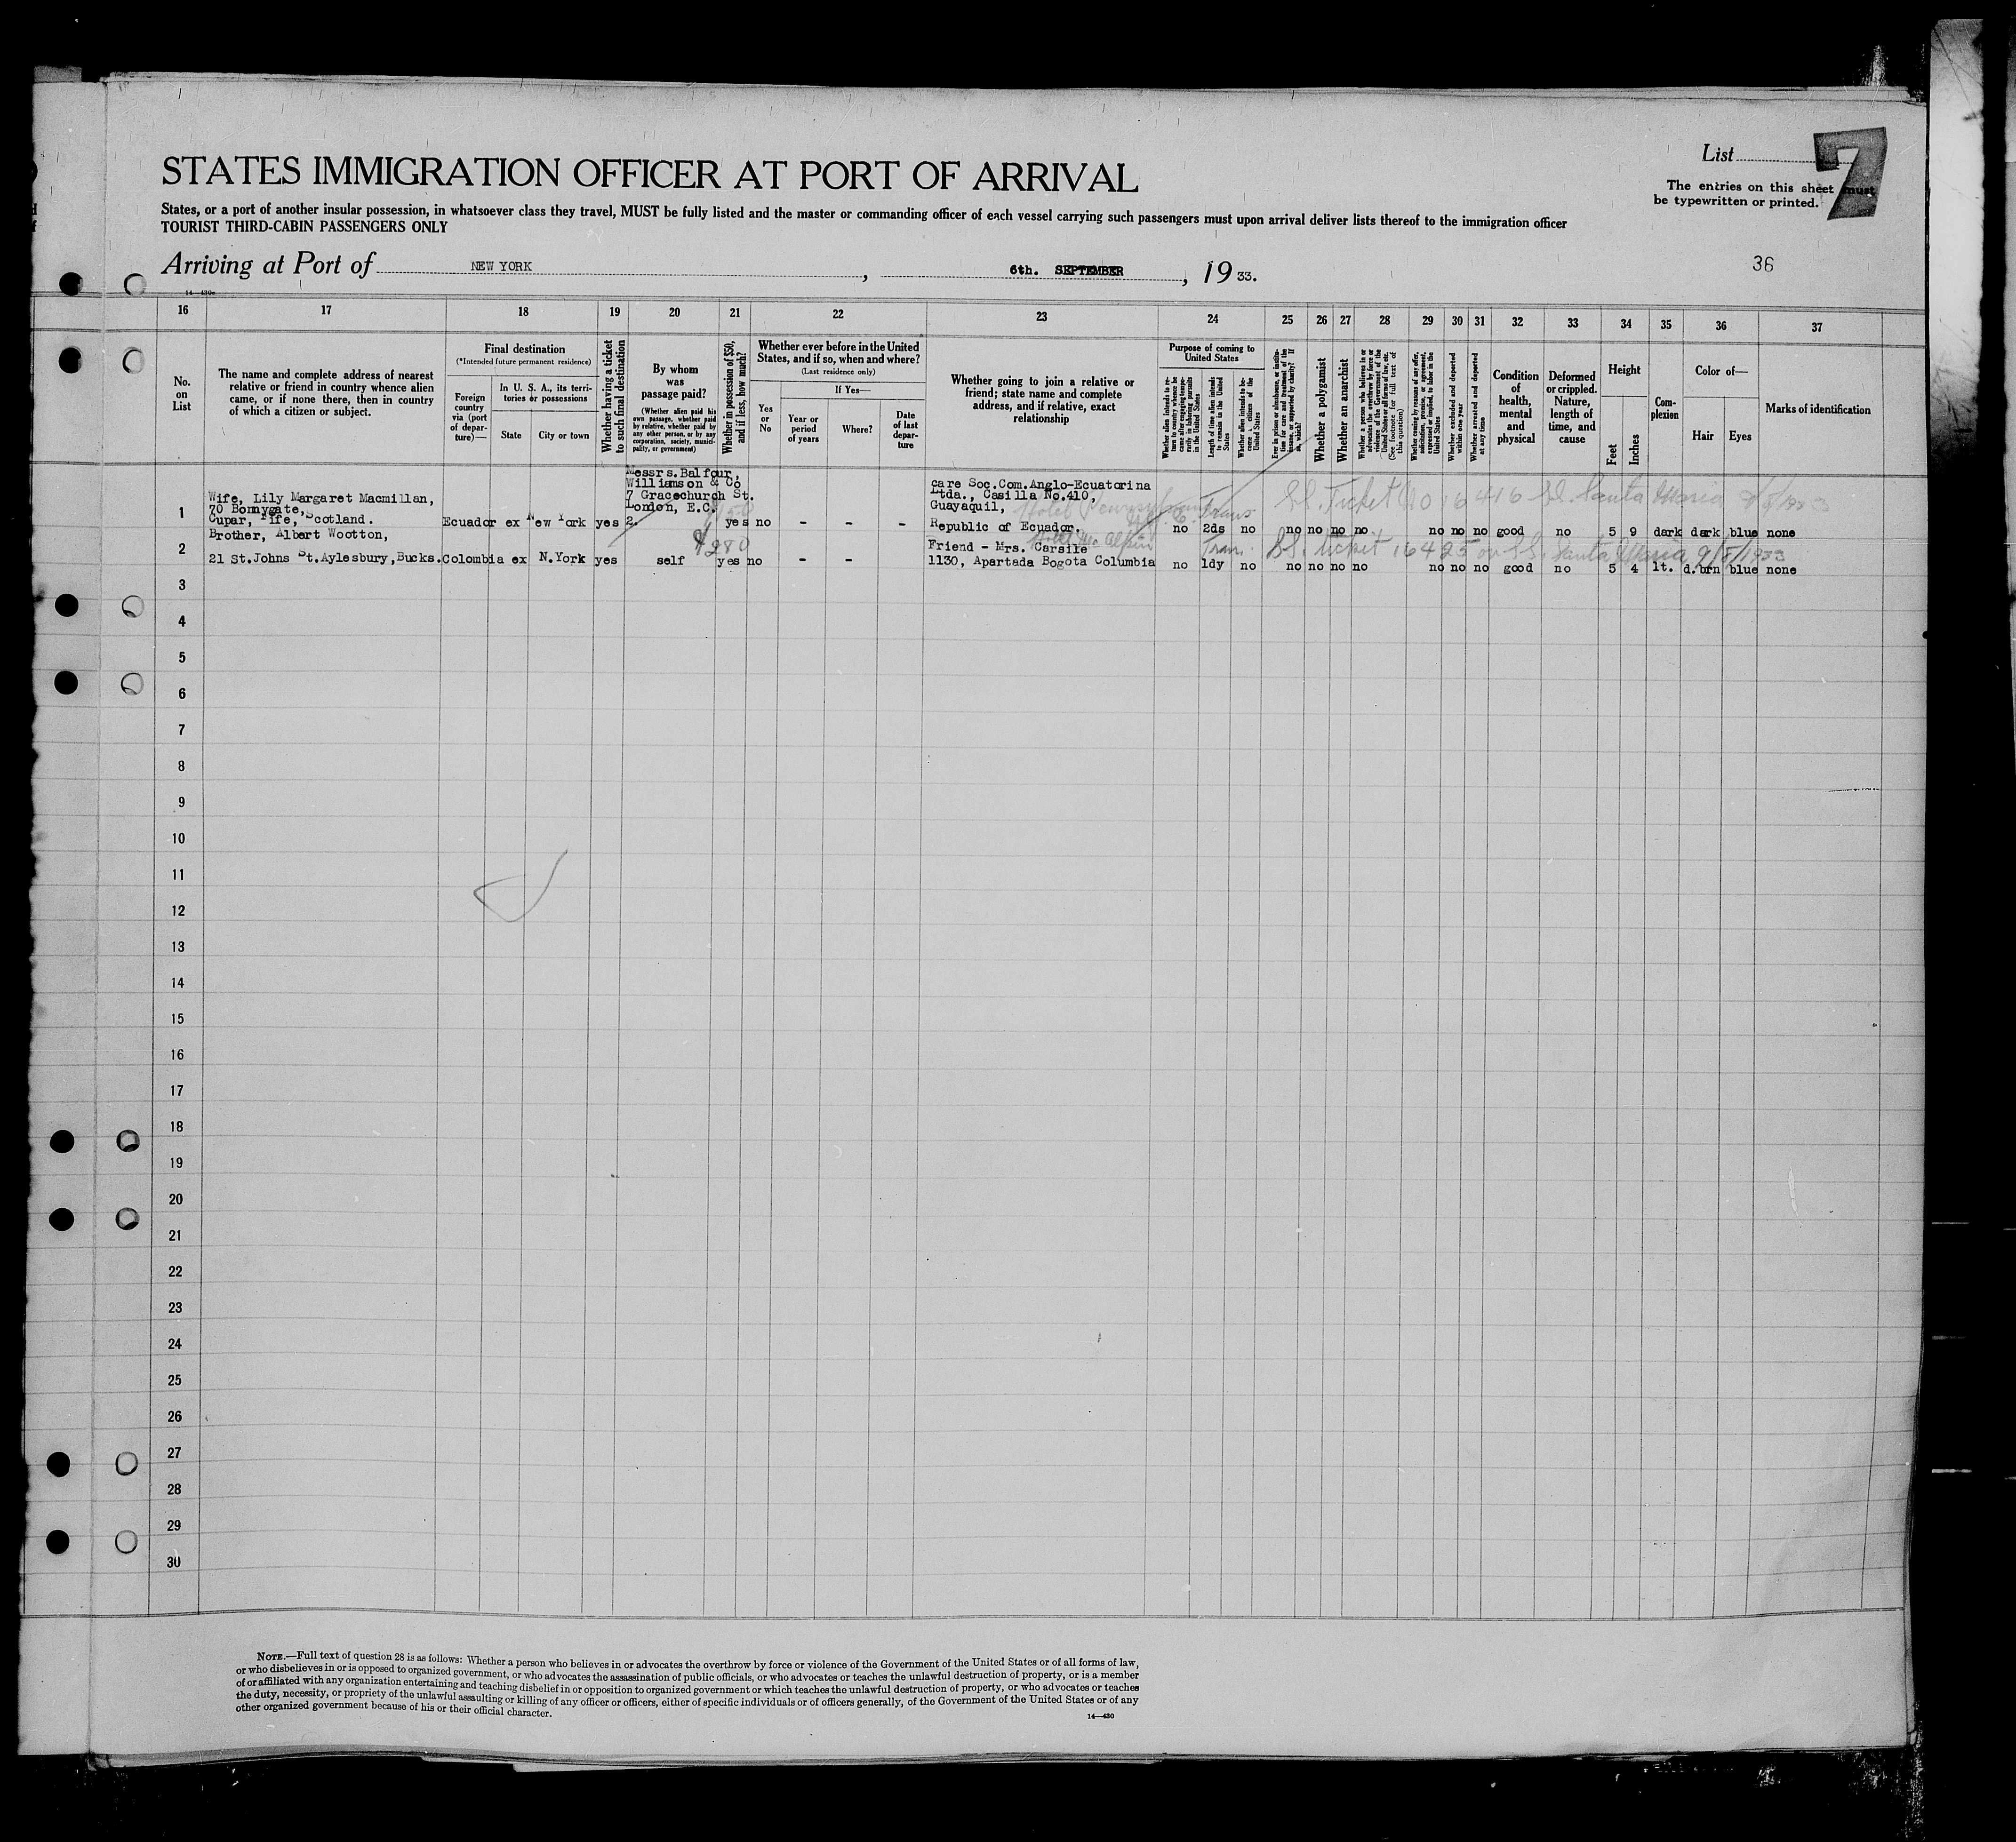 STATES IMMIGRATION OFFICER AT PORT OF ARRIVAL
List 7
The entries on this sheet must
be typewritten or printed.
States, or a port of another insular possession, in whatsoever class they travel, MUST be fully listed and the master or commanding officer of each vessel carrying such passengers must upon arrival deliver lists thereof to the immigration officer
TOURIST THIRD-CABIN PASSENGERS ONLY
Arriving at Port of NEW YORK , 6th. SEPTEMBER , 19 33.
36
14—430c
16 17 18 19 20 21 22 23 24 25 26 27 28 29 30 31 32 33 34 35 36 37
No. on List
The name and complete address of nearest
relative or friend in country whence alien
came, or if none there, then in country
of which a citizen or subject.
Final destination
(*Intended future permanent residence)
Foreign country via (port of depar-ture)—
In U. S. A., its terri-
tories or possessions
State
City or town
Whether having a ticket
to such final destination
By whom
was
passage paid?
(Whether alien paid his
own passage, whether paid
by relative, whether paid by
any other person, or by any
corporation, society, munici-
pality, or government)
Whether in possession of $50,
and if less, how much?
Whether ever before in the United
States, and if so, when and where?
(Last residence only)
Yes or No
If Yes—
Year or period of years
Where?
Date of last depar-ture
Whether going to join a relative or
friend; state name and complete
address, and if relative, exact
relationship
Purpose of coming to
United States
Whether alien intends to re-
turn to country whence he
came after engaging tempo-
rarily in laboring pursuits
in the United States
Length of time alien intends
to remain in the United
States
Whether alien intends to be-
come a citizen of the
United States
Ever in prison or almshouse, or institu-
tion for care and treatment of the
insane, or supported by charity? If
so, which?
Whether a polygamist
Whether an anarchist
Whether a person who believes in or
advocates the overthrow by force or
violence of the Government of the
United States or all forms of law, etc.
(See footnote for full text of
this question)
Whether coming by reason of any offer,
solicitation, promise, or agreement,
expressed or implied, to labor in the
United States
Whether excluded and deported
within one year
Whether arrested and deported
at any time
Condition of health, mental and physical
Deformed or crippled. Nature, length of time, and cause
Height
Feet
Inches
Com-plexion
Color of—
Hair
Eyes
Marks of identification
1
Wife, Lily Margaret Macmillan,
70 Bonnygate,
Cupar, Fife, Scotland.
Ecuador ex New York yes
Messrs. Balfour,
Williamson & Co
7 Gracechurch St.
London, E.C.
2.
yes no - - -
care Soc.Com.Anglo-Ecuatorina
Ltda., Casilla No.410,
Guayaquil,
Republic of Ecuador.
Hotel Pennsylvania
Trans
S.S. Ticket No 16416 S.S. Santa Maria
no 2ds no no no no no no no no good no 5 9 dark dark blue none
2
Brother, Albert Wootton,
21 St.Johns St.Aylesbury,Bucks.
Colombia ex N.York yes self
$280
yes no - -
Hotel McAlpin
Friend - Mrs. Carsile
1130, Apartada Bogota Columbia
Tran.
S.S. ticket 16425 on S.S. Santa Maria 9/8/1933
no 1dy no no no no no no no no good no 5 4 lt. d.brn blue none
3
4
5
6
7
8
9
10
11
12
13
14
15
16
17
18
19
20
21
22
23
24
25
26
27
28
29
30
NOTE.—Full text of question 28 is as follows: Whether a person who believes in or advocates the overthrow by force or violence of the Government of the United States or of all forms of law,
or who disbelieves in or is opposed to organized government, or who advocates the assassination of public officials, or who advocates or teaches the unlawful destruction of property, or is a member
of or affiliated with any organization entertaining and teaching disbelief in or opposition to organized government or which teaches the unlawful destruction of property, or who advocates or teaches
the duty, necessity, or propriety of the unlawful assaulting or killing of any officer or officers, either of specific individuals or of officers generally, of the Government of the United States or of any
other organized government because of his or their official character.
14—430